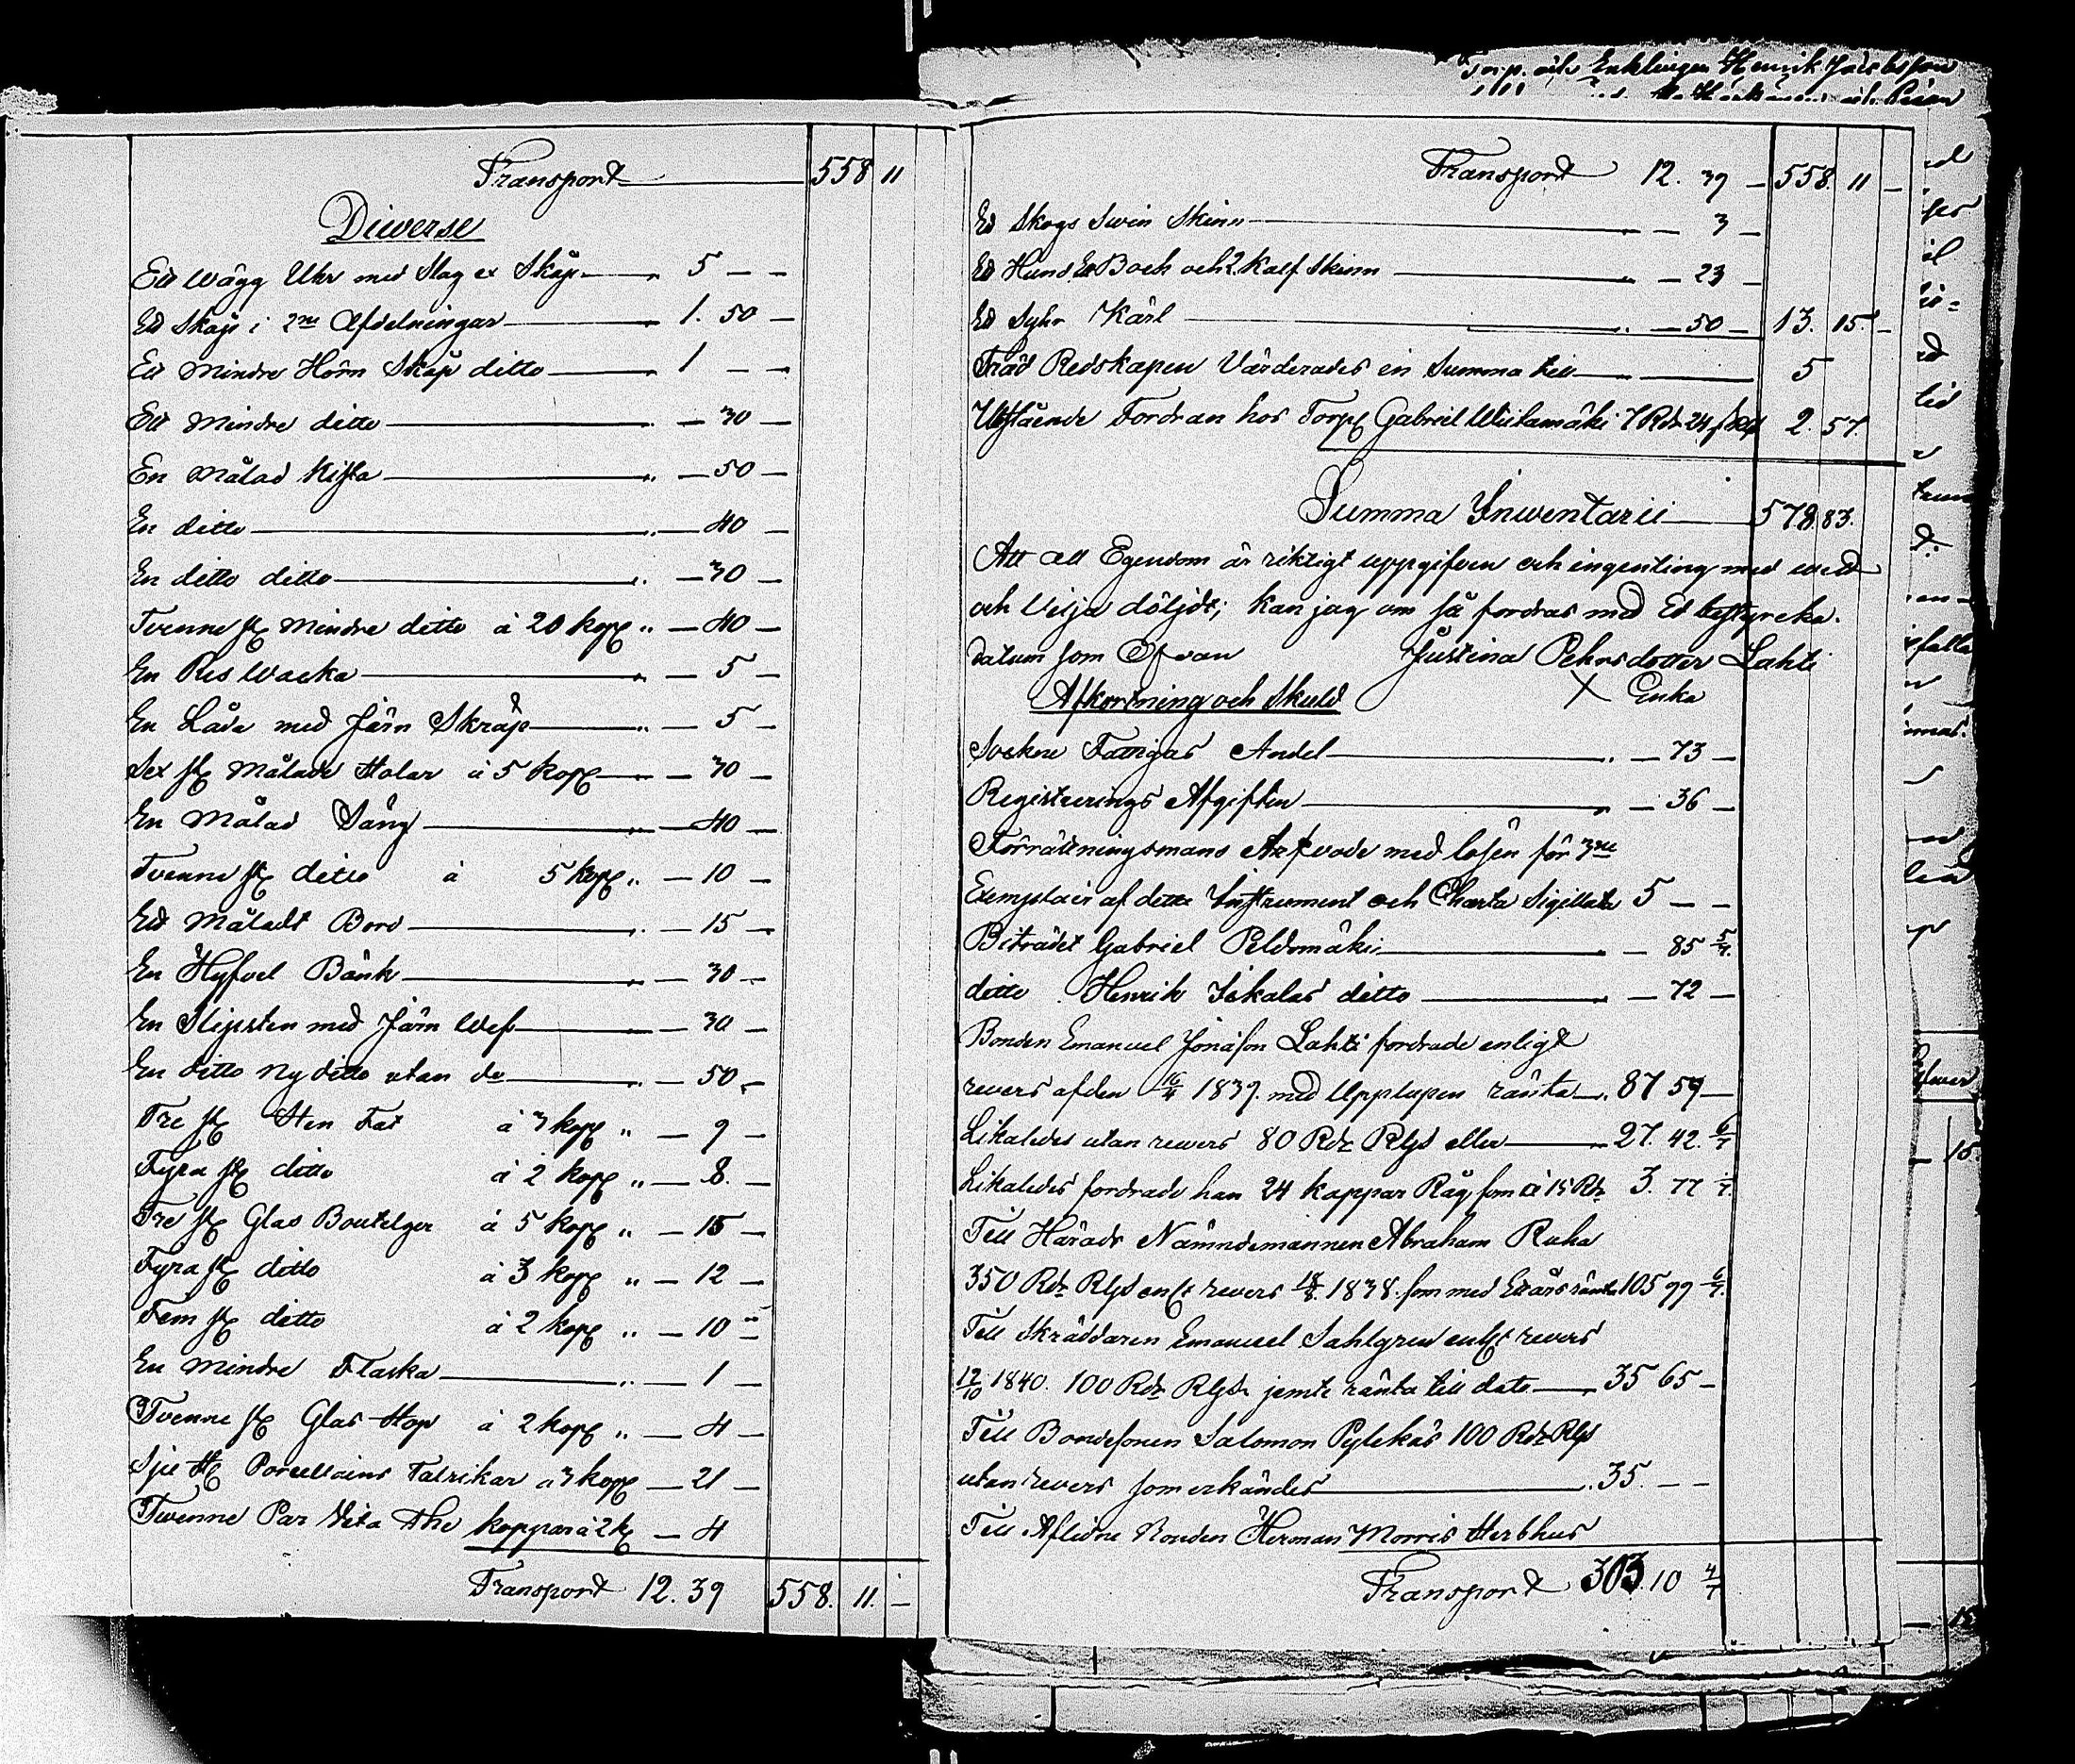 Transport 558 11
Diverse
Ett Wägg Uhr med Slag et Skåp 5 – –
Ett Skåp i 2ne Afdelningar 1. 50 –
Ett Mindre Hörn Skåp ditto 1 – –
Ett Mindre ditto – 30 –
En Målad Kista – 50 –
En ditto – 40 –
En ditto ditto – 30 –
Tvenne st Mindre ditto à 20 kop „ – 40 –
En Res Wacka – 5 –
En Låda med Järn Skråp – 5 –
Sex st Målade Stolar à 5 kop – 30 –
En Målad Säng – 40 –
Tvenne st ditto à 5 kop „ – 10 –
Ett Måladt Bord – 15 –
En Hyfvel Bänk – 30 –
En Slipsten med Järn Wef – 30 –
En ditto Ny ditto utan do – 50 –
Tre st Sten Fat à 3 kop „ – 9 –
Fyra st ditto à 2 kop „ – 8. –
Tre st Glas Boutelger à 5 kop „ – 15 –
Fyra st ditto à 3 kop „ – 12 –
Fem st ditto à 2 kop „ – 10 –
En Mindre Flaska – 1 –
Tvenne st Glas Stop à 2 kop „ – 4 –
Sju st Porcellains Talrikar a 3 kop – 21 –
Twenne Par Vita The koppar à 2 k – 4
Transport 12. 39 558. 11. –
Torp. och Enklingen Henrik Jacobsson
och
Transport 12. 39 – 558. 11 –
Ett Skogs Swin Skinn – 3 –
Ett Hund Et Bock och 2 Kalf Skinn – 23 –
Ett Syhr Kärl – 50 – 13. 15. –
Träd Redskapen Värderades en Summa till 5
Utstående Fordran hos Torp Gabriel Wiitamäki 7 Rdr 24 s Rgs 2. 57.
Summa Inwentarii 578. 83.
Att all Egendom är riktigt uppgifven och ingenting med wett
och Vilja döljdt; kan jag om så fordras med Ed bestyrcka.
datum som Ofvan Justina Pehrsdotter Lahti
X Enka
Afkortning och Skuld
Sockne Fattigas Andel – 73 –
Registrerings Afgiften – 36 –
Förrättningsmans Arfvode med lösen för 3ne
Exemplair af detta Instrument och Charta Sigillata 5 – –
Biträdet Gabriel Peldomäki – 85 5/7.
ditto Henrik Iskalas ditto – 72 –
Bonden Emanuel Jonasson Lahti fordrade enligt
revers af den 16/4 1839. med Upplupen ränta 87 59 –
Likaledes utan revers 80 Rdr Rgs eller 27. 42. 6/7
Likaledes fordrade han 24 kappar Råg som à 15 Rdr 3. 77 1/7.
Till Härads Nämndemannen Abraham Ruha
350 Rdr Rgs enl revers 18/8. 1838. som med Ett års ränta 105 99 6/7.
Till Skräddaren Emanuel Sahlgren enl revers
12/10 1840. 100 Rdr Rgs jemte ränta till dato 35 65 –
Till Bondesonen Salomon Pylckäs 100 Rdr Rgs
utan revers som erkändes 35. – –
Till Aflidne Bonden Herman Morris Sterbhus
Transport 303. 10 4/7